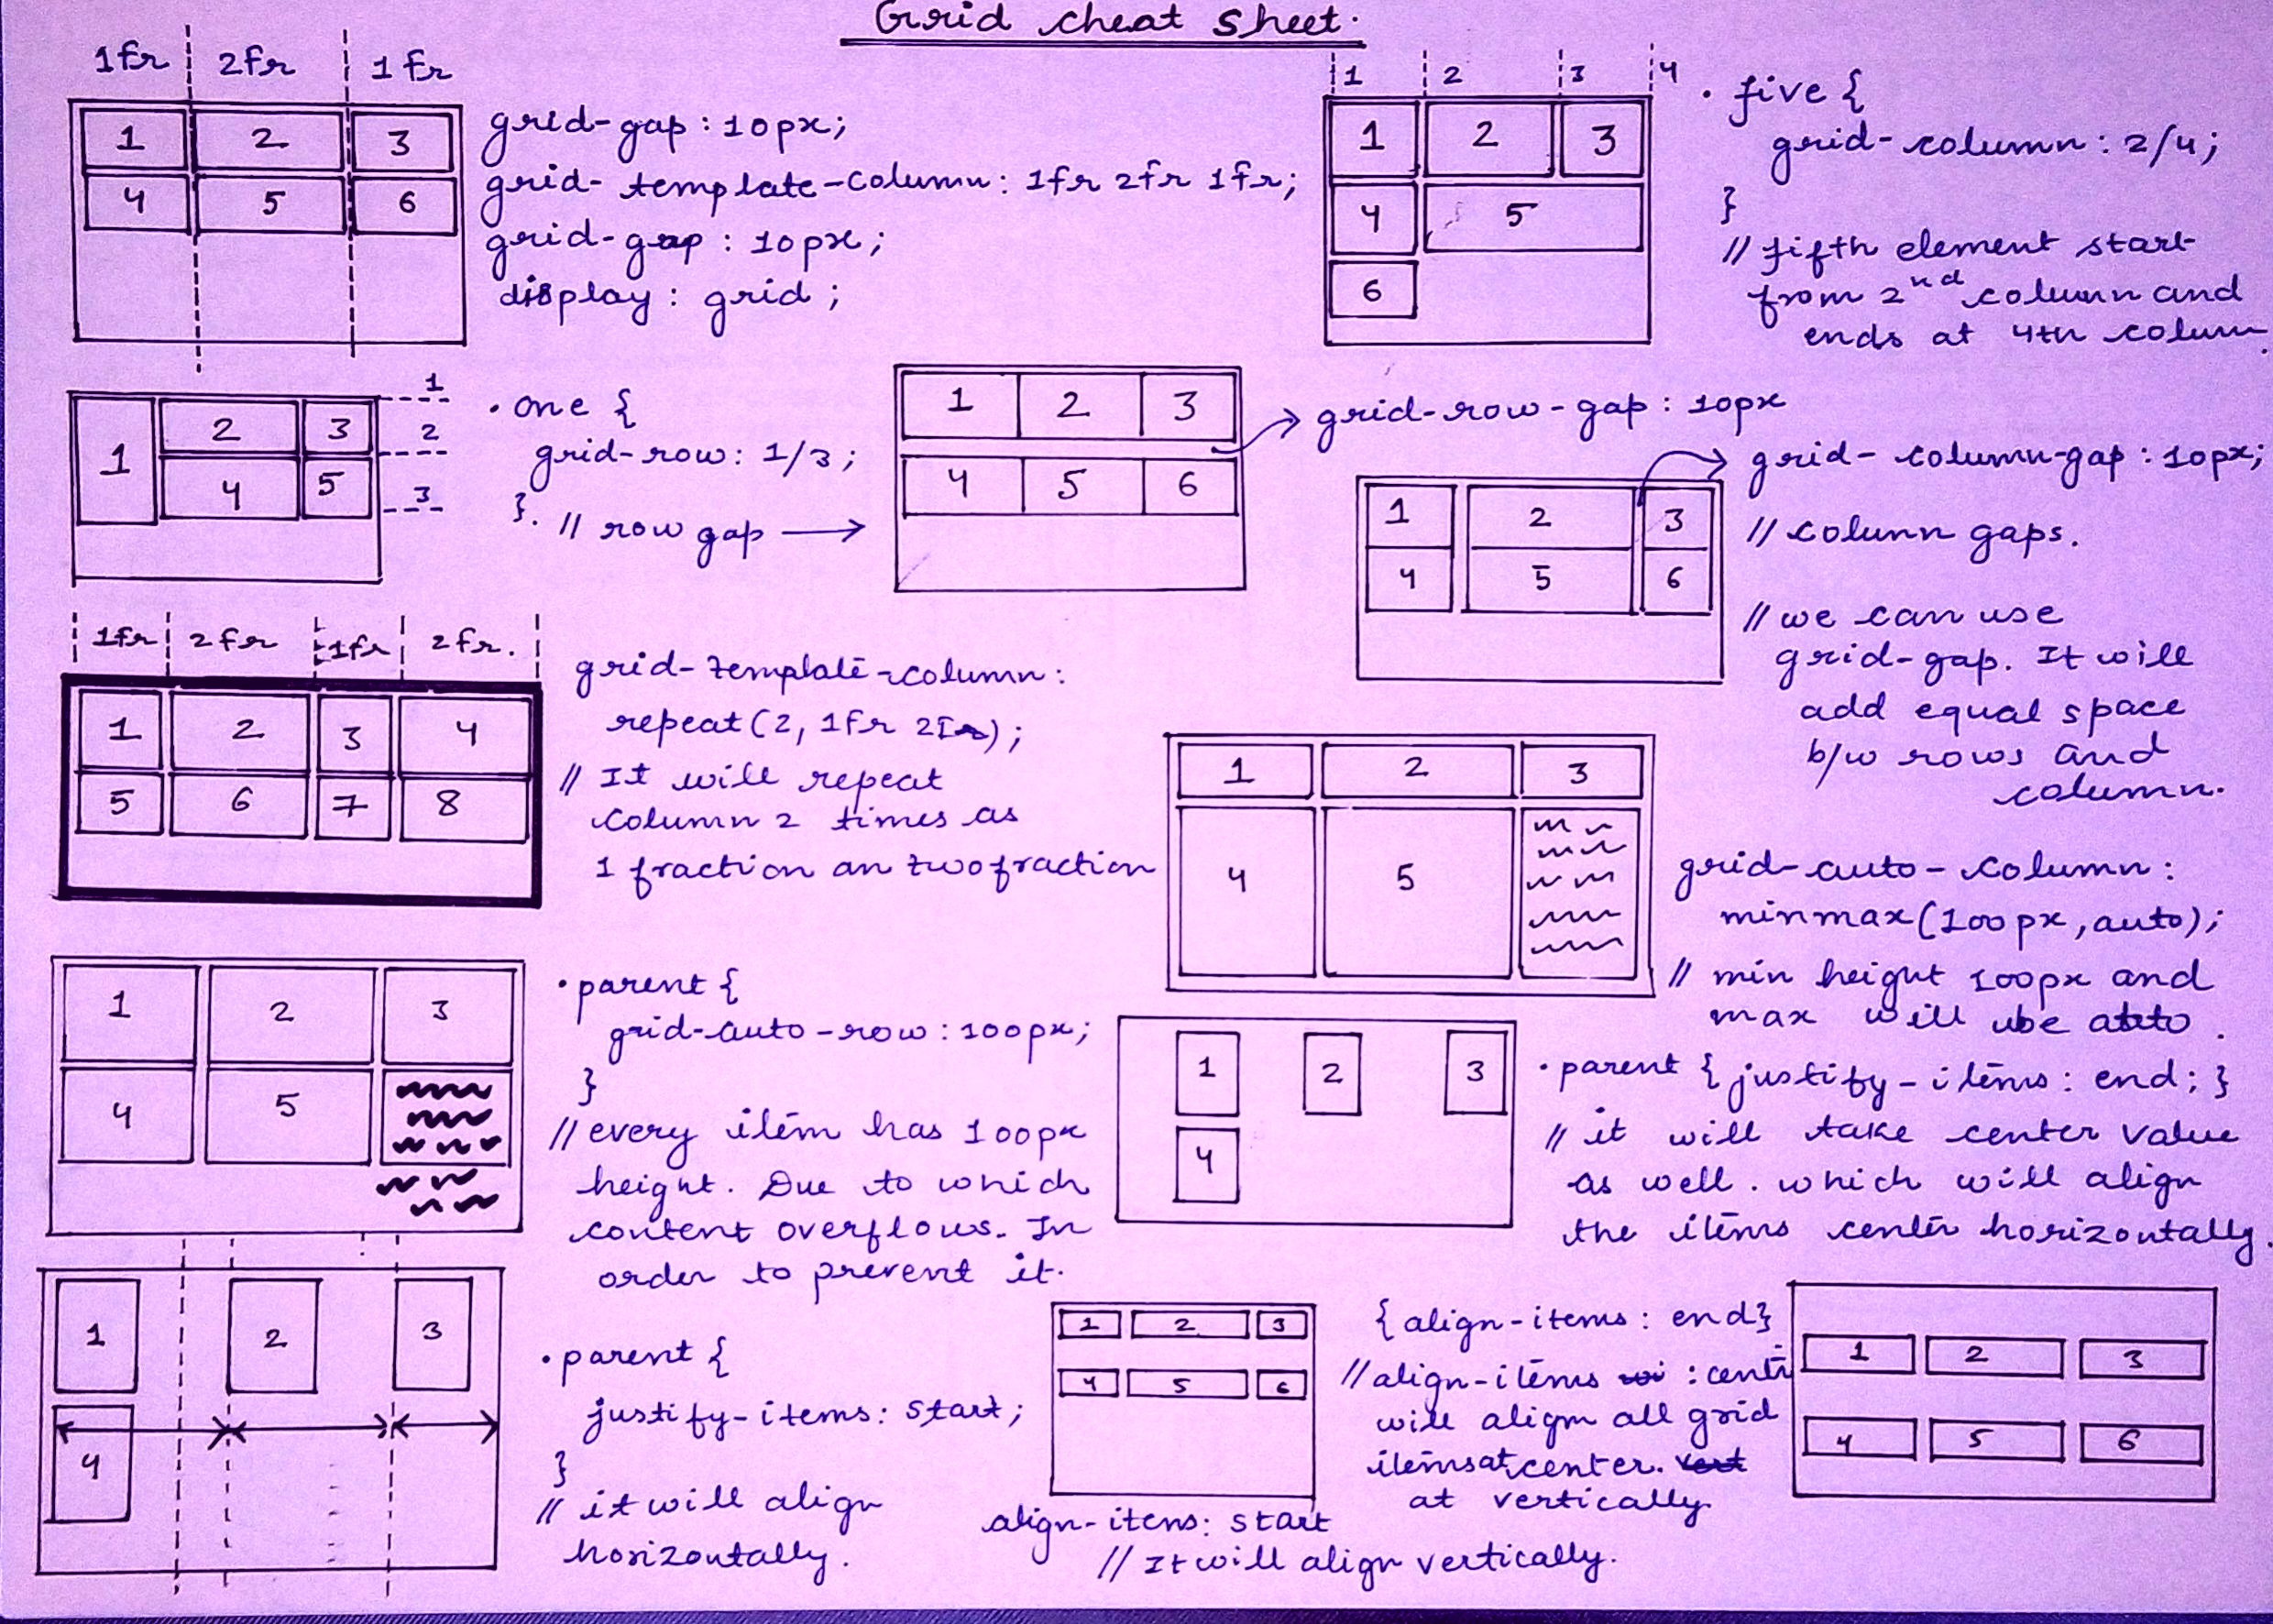 Grid cheat sheet.
1fr 2fr 1fr
1 2 3
4 5 6
grid-gap : 10px;
grid-template-column: 1fr 2fr 1fr;
grid-gap : 10px;
display : grid ;
1 2 3 4
1 2 3
4 5
6
. five {
grid-column : 2/4;
}
// fifth element start
from 2nd column and
ends at 4th column.
1 2 3
4 5
1
2
3
. one {
grid-row: 1/3;
}.
// row gap →
1 2 3
4 5 6
→ grid-row-gap : 10px
1 2 3
4 5 6
grid-column-gap : 10px;
// column gaps.
// we can use
grid-gap. It will
add equal space
b/w rows and
column.
1fr 2fr 1fr 2fr.
1 2 3 4
5 6 7 8
grid-template-column:
repeat(2, 1fr 2fr);
// It will repeat
column 2 times as
1 fraction an two fraction
1 2 3
4 5
grid-auto-column :
minmax(100px, auto);
// min height 100px and
max will be auto.
1 2 3
4 5
. parent {
grid-auto-row : 100px;
}
// every item has 100px
height. Due to which
content overflows. In
order to prevent it.
1 2 3
4
. parent { justify-items: end; }
// it will take center value
as well. which will align
the items center horizontally.
1 2 3
4
. parent {
justify-items: start;
}
// it will align
horizontally.
1 2 3
4 5 6
align-items: start
// It will align vertically.
{ align-items : end}
// align-items : center
will align all grid
items at center. vert
at vertically
1 2 3
4 5 6